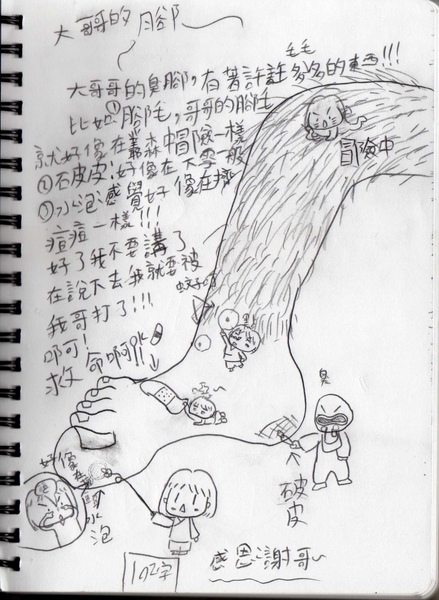 大哥的腳
大哥哥的臭腳，有著許許多多的東西!!!
毛毛
比如①腳毛，哥哥的腳毛
就好像在叢森中冒險一樣
②石皮皮：好像在下雪一般
③水泡：感覺好像在擠
痘痘一樣!!!
好了我不要講了
在說下去我就要被
我哥打了!!!
叩可!
救命啊!!!
冒險中
蚊子叮
亞~
臭
石皮皮
好像在
水泡
102字
感恩謝哥~